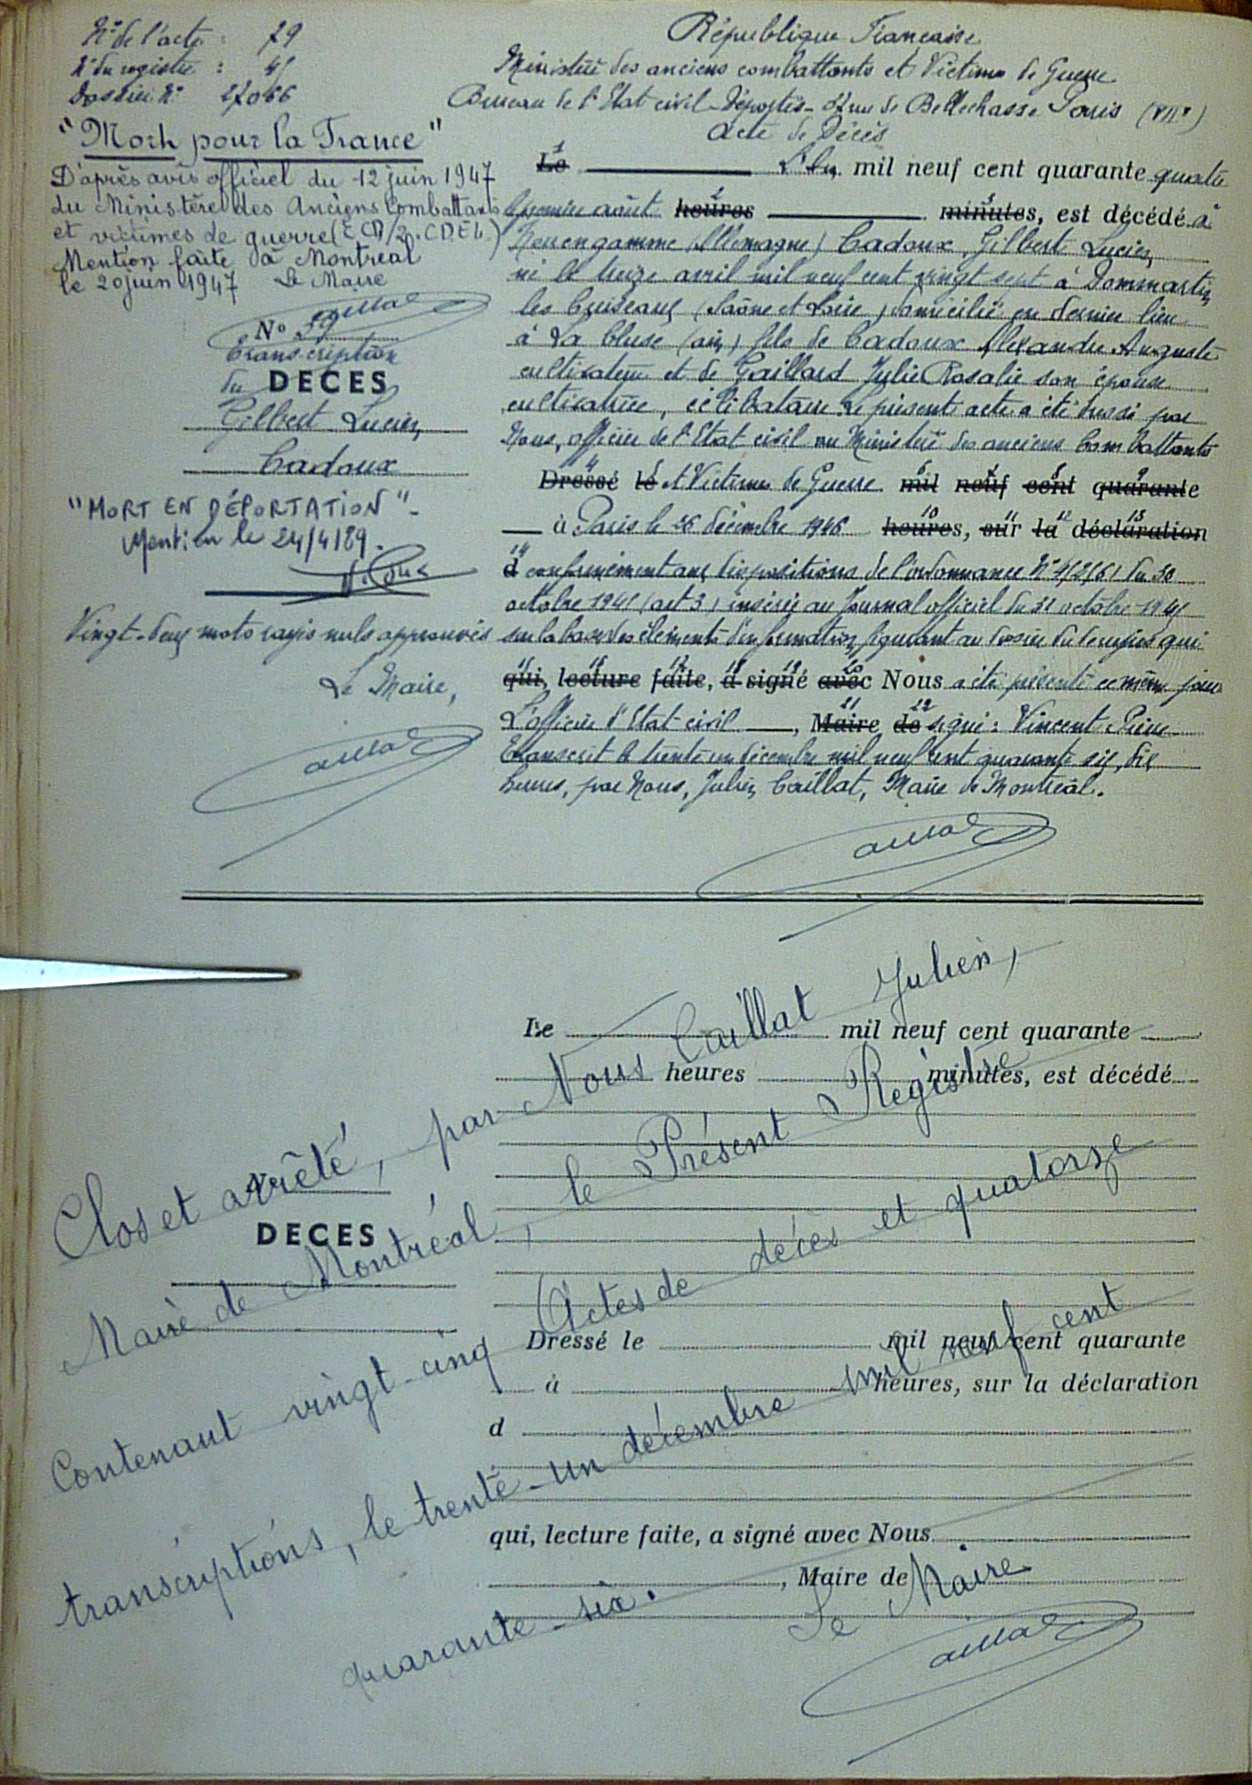 N° de l'acte : 79
N° du registre : 41
Dossier N° 27066
"Mort pour la France"
D'après avis officiel du 12 juin 1947
du Ministère des Anciens Combattants
et victimes de guerre
Mention faite à Montréal
le 20 juin 1947 Le Maire
N° 39
Transcription
du DECES
Gilbert Lucien
Cadoux
"MORT EN DÉPORTATION".
Mention le 24/4/89.
Vingt-deux mots rayés nuls approuvés
Le Maire,
République Française
Ministère des anciens combattants et Victimes de Guerre
Bureau de l'Etat civil-Déportés - 37 rue de Bellechasse Paris (VII°)
Acte de Décès
Le L'an mil neuf cent quarante quatre
le premier août heures minutes, est décédé à
Neuengamme (Allemagne) Cadoux, Gilbert Lucien,
né le treize avril mil neuf cent vingt sept à Dommartin
les Cuiseaux (Saône et Loire) domicilié en dernier lieu
à La Cluse (ain) fils de Cadoux Alexandre Auguste
cultivateur et de Gaillard Julie Rosalie son épouse
cultivatrice, célibataire. Le présent acte a été dressé par
Nous, officier de l'Etat civil au Ministère des anciens Combattants
Dressé le et Victimes de Guerre mil neuf cent quarante
à Paris le 26 décembre 1946 heures, sur la déclaration
d conformément aux dispositions de l'ordonnance N° 45/2561 du 30
octobre 1945 (art 3) insérée au Journal officiel du 31 octobre 1945
sur la base des éléments d'information figurant au dossier qui
qui, lecture faite, a signé avec Nous a été présenté ce même jour
L'officier d'Etat-civil, Maire de signé : Vincent Pierre
Transcrit le trente un décembre mil neuf cent quarante six, dix
heures, par Nous, Julien Caillat, Maire de Montréal.
Le mil neuf cent quarante
heures minutes, est décédé
DECES
Dressé le mil neuf cent quarante
à heures, sur la déclaration
d
qui, lecture faite, a signé avec Nous
, Maire de
Clos et arrêté, par Nous Caillat Julien,
Maire de Montréal, le Présent Registre
Contenant vingt-cinq Actes de décès et quatorze
transcriptions, le trente-un décembre mil neuf cent
quarante-six.
Le Maire